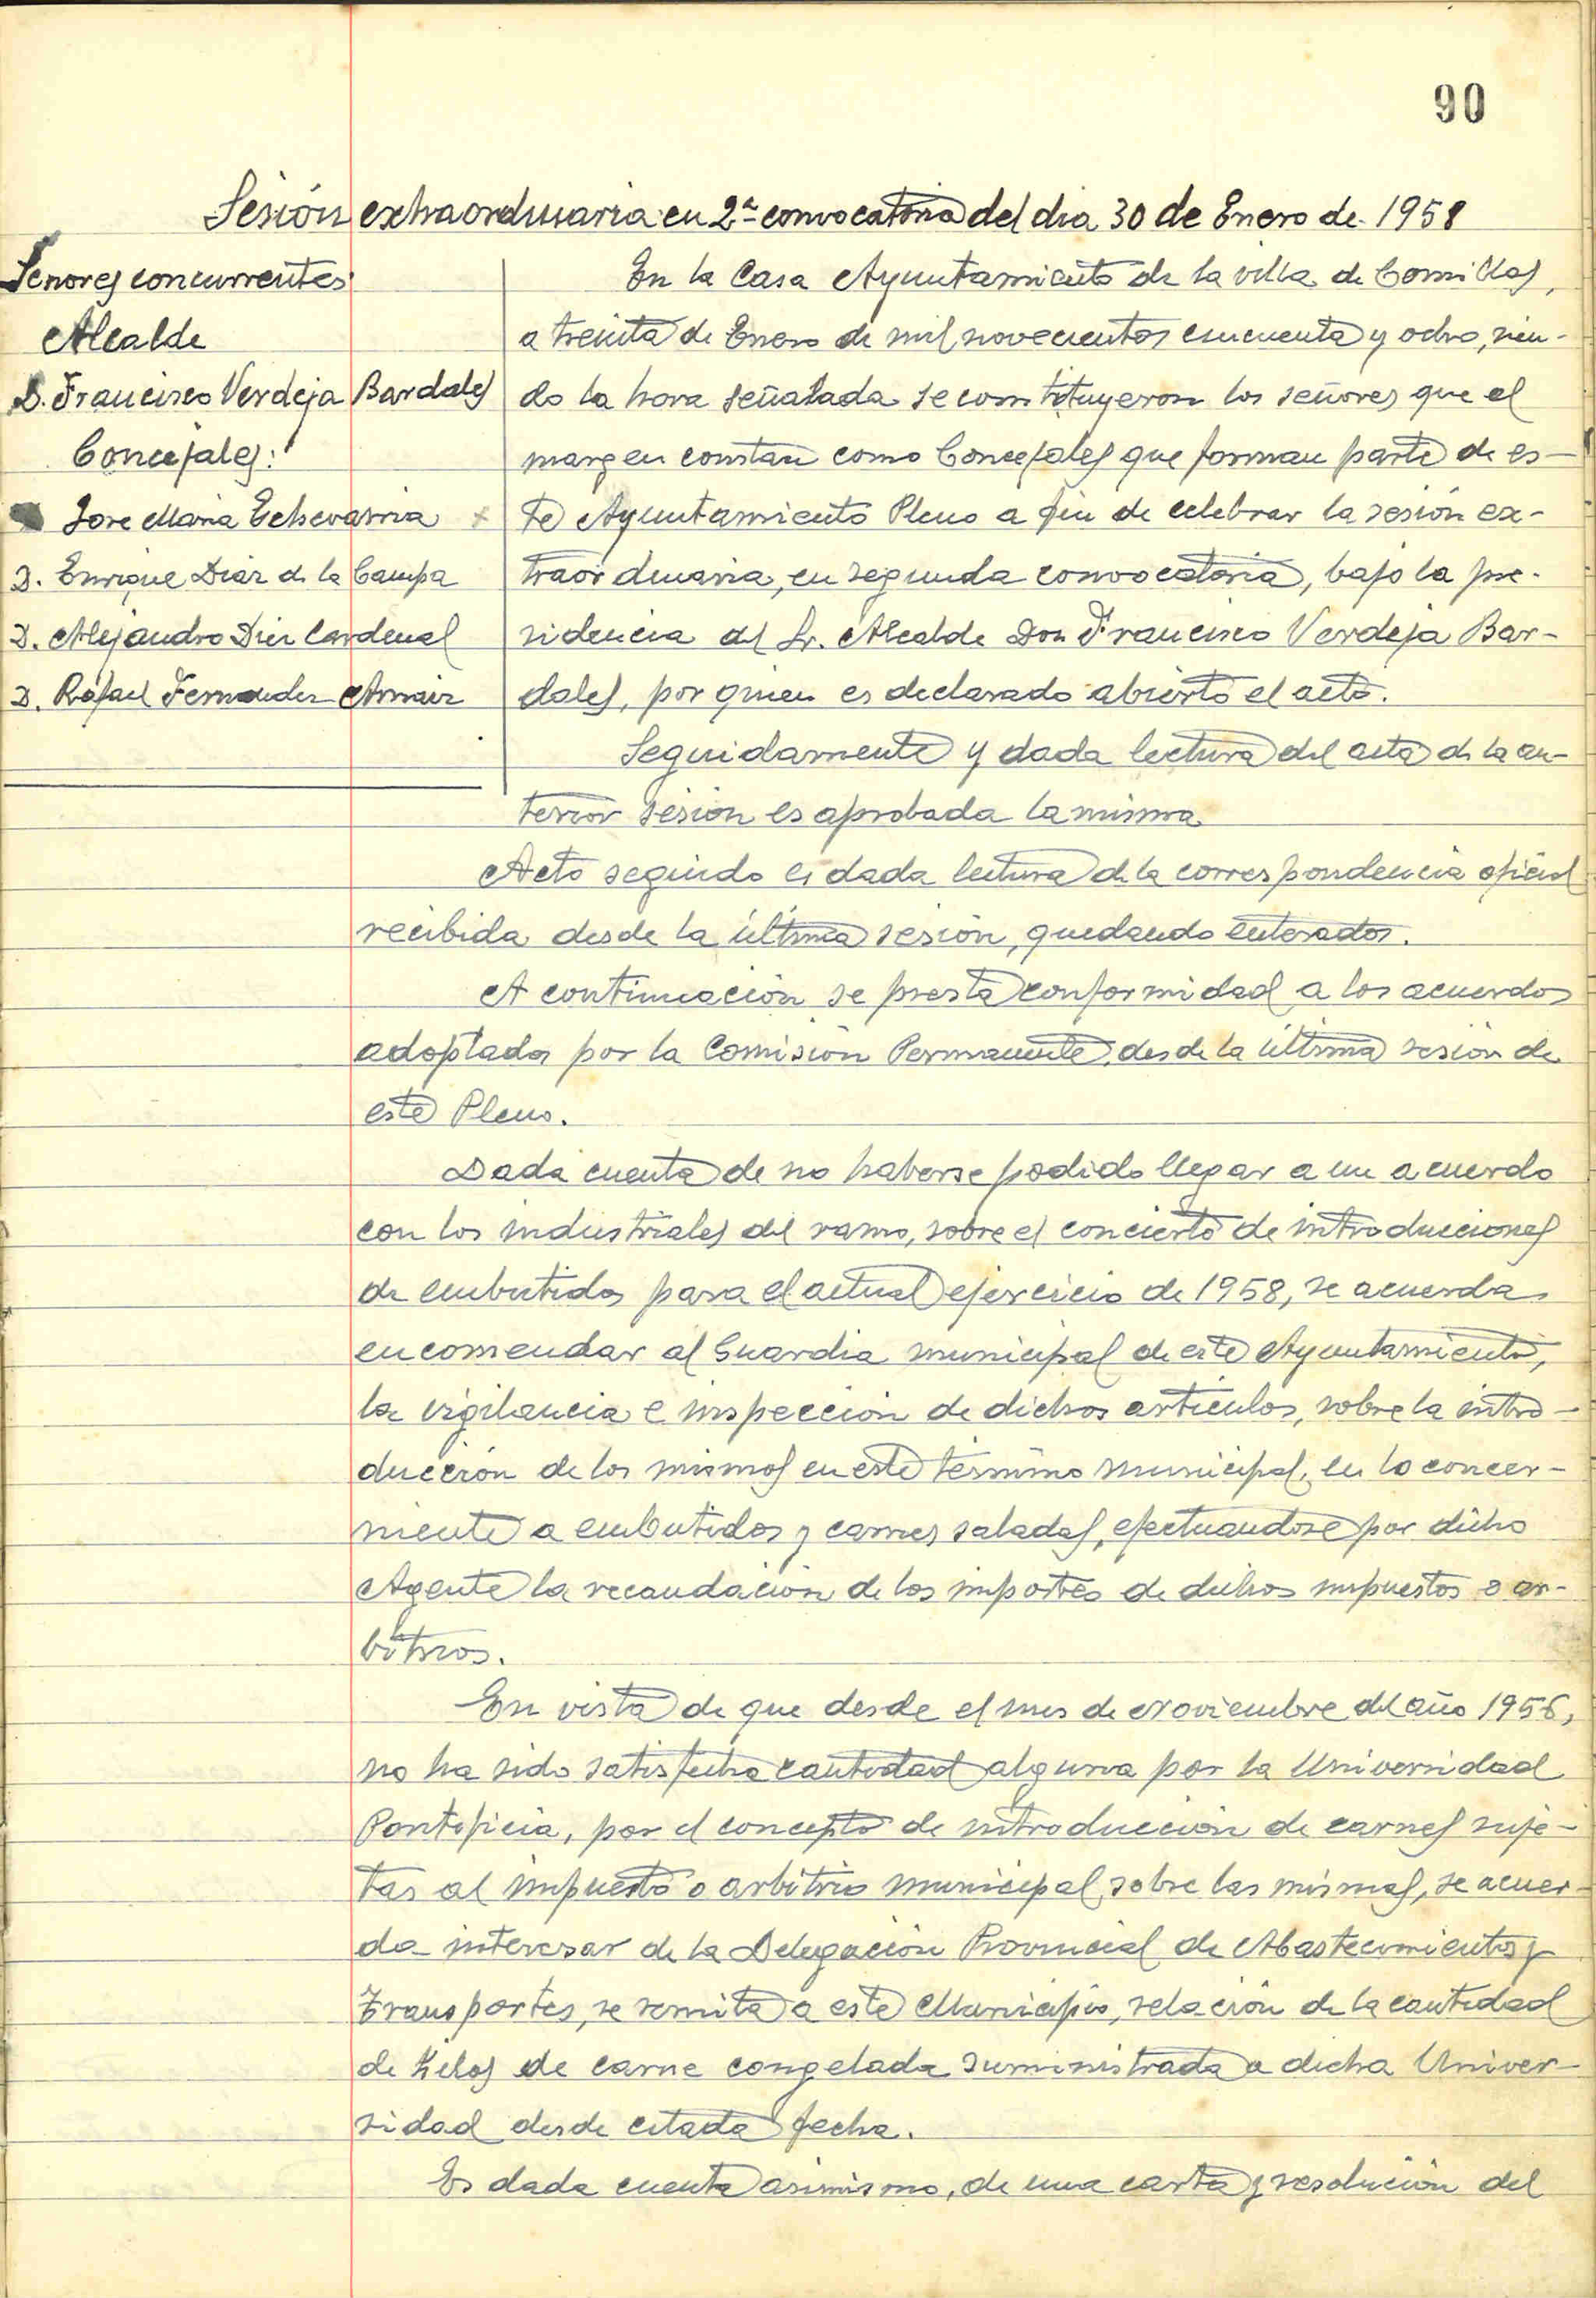 90
Sesión extraordinaria en 2ª convocatoria del dia 30 de Enero de 1958
Señores concurrentes:
Alcalde
D. Francisco Verdeja Bardales
Concejales:
Jose Maria Echevarria
D. Enrique Diaz de la Campa
D. Alejandro Diez Cardenal
D. Rafael Fernandez
En la Casa Ayuntamiento de la villa de Comillas,
a treinta de Enero de mil novecientos cincuenta y ocho, sien-
do la hora señalada se constituyeron los señores que el
margen constan como Concejales que forman parte de es-
te Ayuntamiento Pleno a fin de celebrar la sesión ex-
traordinaria, en segunda convocatoria, bajo la pre-
sidencia del Sr. Alcalde Don Francisco Verdeja Bar-
dales, por quien es declarado abierto el acto.
Seguidamente y dada lectura del acta de la an-
terior sesión es aprobada la misma
Acto seguido es dada lectura de la correspondencia oficial
recibida desde la última sesión, quedando enterados.
A continuación se presta conformidad a los acuerdos
adoptados por la Comisión Permanente, desde la última sesión de
este Pleno.
Dada cuenta de no haberse podido llegar a un acuerdo
con los industriales del ramo, sobre el concierto de introducciones
de embutidos para el actual ejercicio de 1958, se acuerda
encomendar al Guardia municipal de este Ayuntamiento,
la vigilancia e inspección de dichos artículos, sobre la intro-
ducción de los mismos en este término municipal, en lo concer-
niente a embutidos y carnes saladas, efectuandose por dicho
Agente la recaudación de los importes de dichos impuestos o ar-
bitrios.
En vista de que desde el mes de Noviembre del año 1956,
no ha sido satisfecha cantidad alguna por la Universidad
Pontificia, por el concepto de introducción de carnes suje-
tas al impuesto o arbitrio municipal sobre las mismas, se acuer-
da interesar de la Delegación Provincial de Abastecimientos y
Transportes, se remita a este Municipio, relación de la cantidad
de Kilos de carne congelada suministrada a dicha Univer-
sidad desde citada fecha.
Es dada cuenta asimismo, de una carta y resolución del